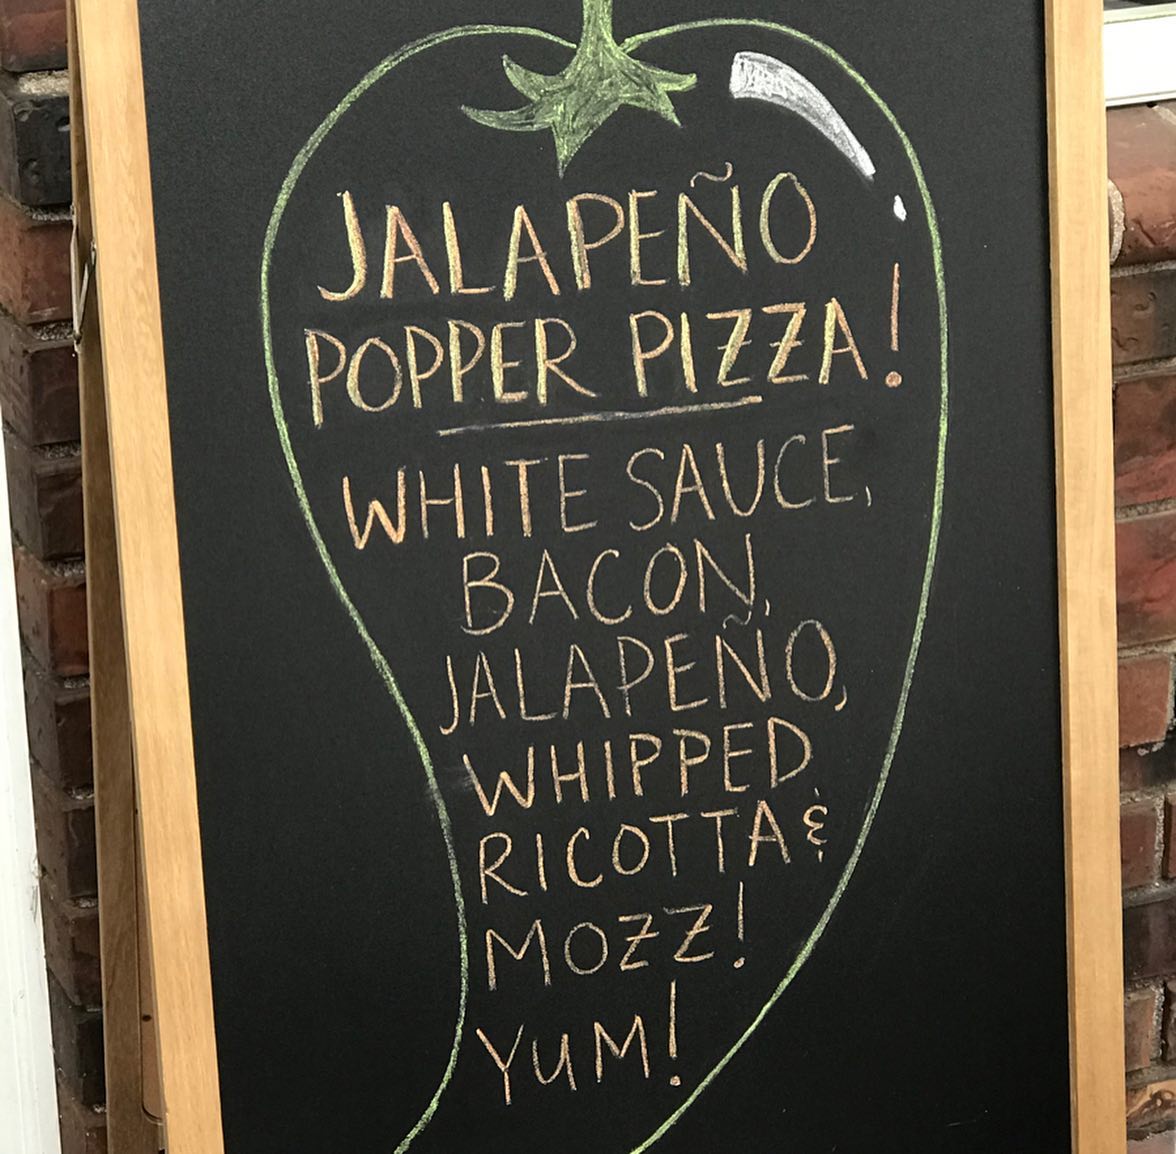 JALAPEÑO
POPPER PIZZA!
WHITE SAUCE,
BACON,
JALAPEÑO,
WHIPPED
RICOTTA &
MOZZ!
YUM!